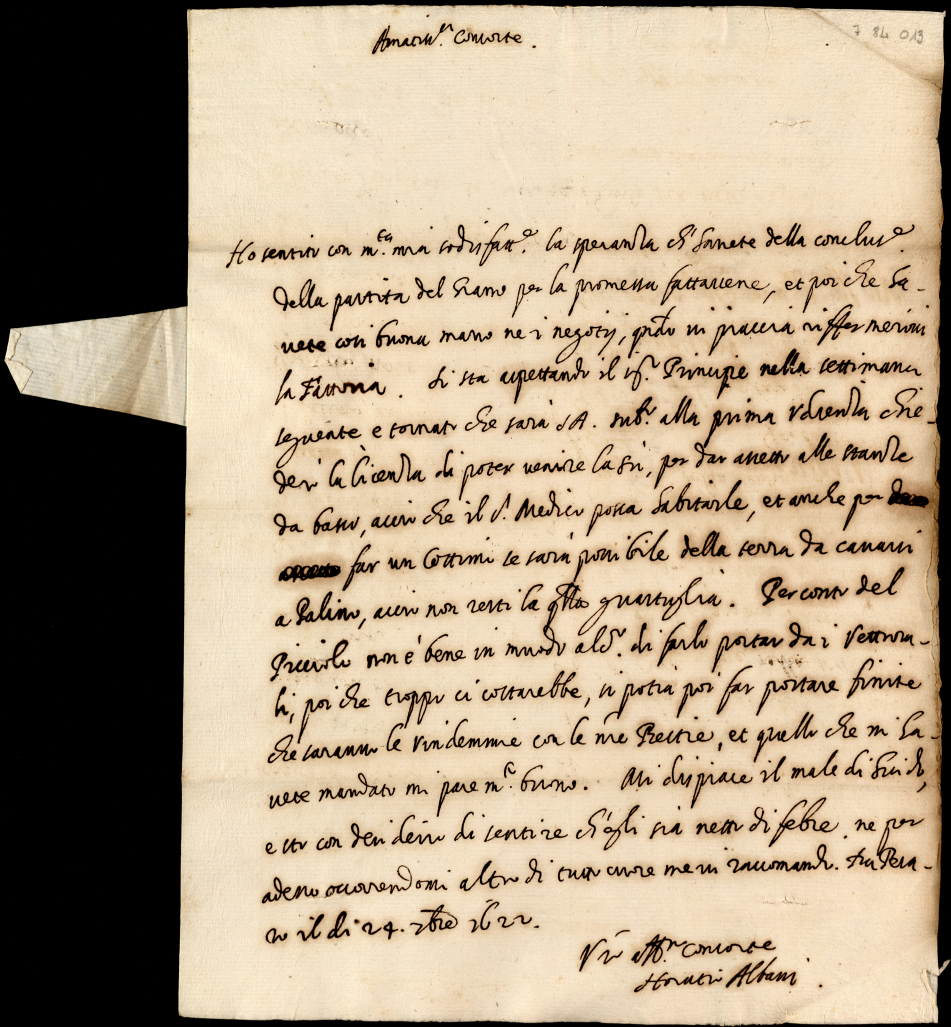 7 84 013
Amatiss.ma Consorte.
Ho sentito con m.ta mia sodisfatt.e la speranza ch'havete della conclus.e
della partita del Grano per la promessa fattavene, et poi che ha-
vete così buona mano ne i negotij, q̃ndo vi piaccia riffermerovvi
la Fattoria. Si sta aspettando il s.r Principe nella settimana
seguente e tornato che sarà S A. sub.o alla prima Udienza chie-
derò la licenza di poter venire la sù, per dar assetto alle stanze
da basso, acciò che il S.r Medico possa habitarle, et anche per
far un Cottimo se sarà possibile della terra da cavarsi
a Palino, acciò non resti la q̃lla guastuglia. Per conto del
Picciolo non è bene in modo alc.o di farlo portar da i Vettura-
li, poi che troppo ci costarebbe, si potrà poi far portare finite
che saranno le Vindemmie con le ñre Bestie, et quello che mi ha-
vete mandato mi pare m.to buono. Mi dispiace il male di Guido,
e sto con desiderio di sentire ch'egli sia netto di febre. ne per
adesso occorrendomi altro di tutto cuore me vi raccomando. Da Pesa-
ro il dì 24. 7bre 1622.
V.ro aff.mo Consorte
Horatio Albani.